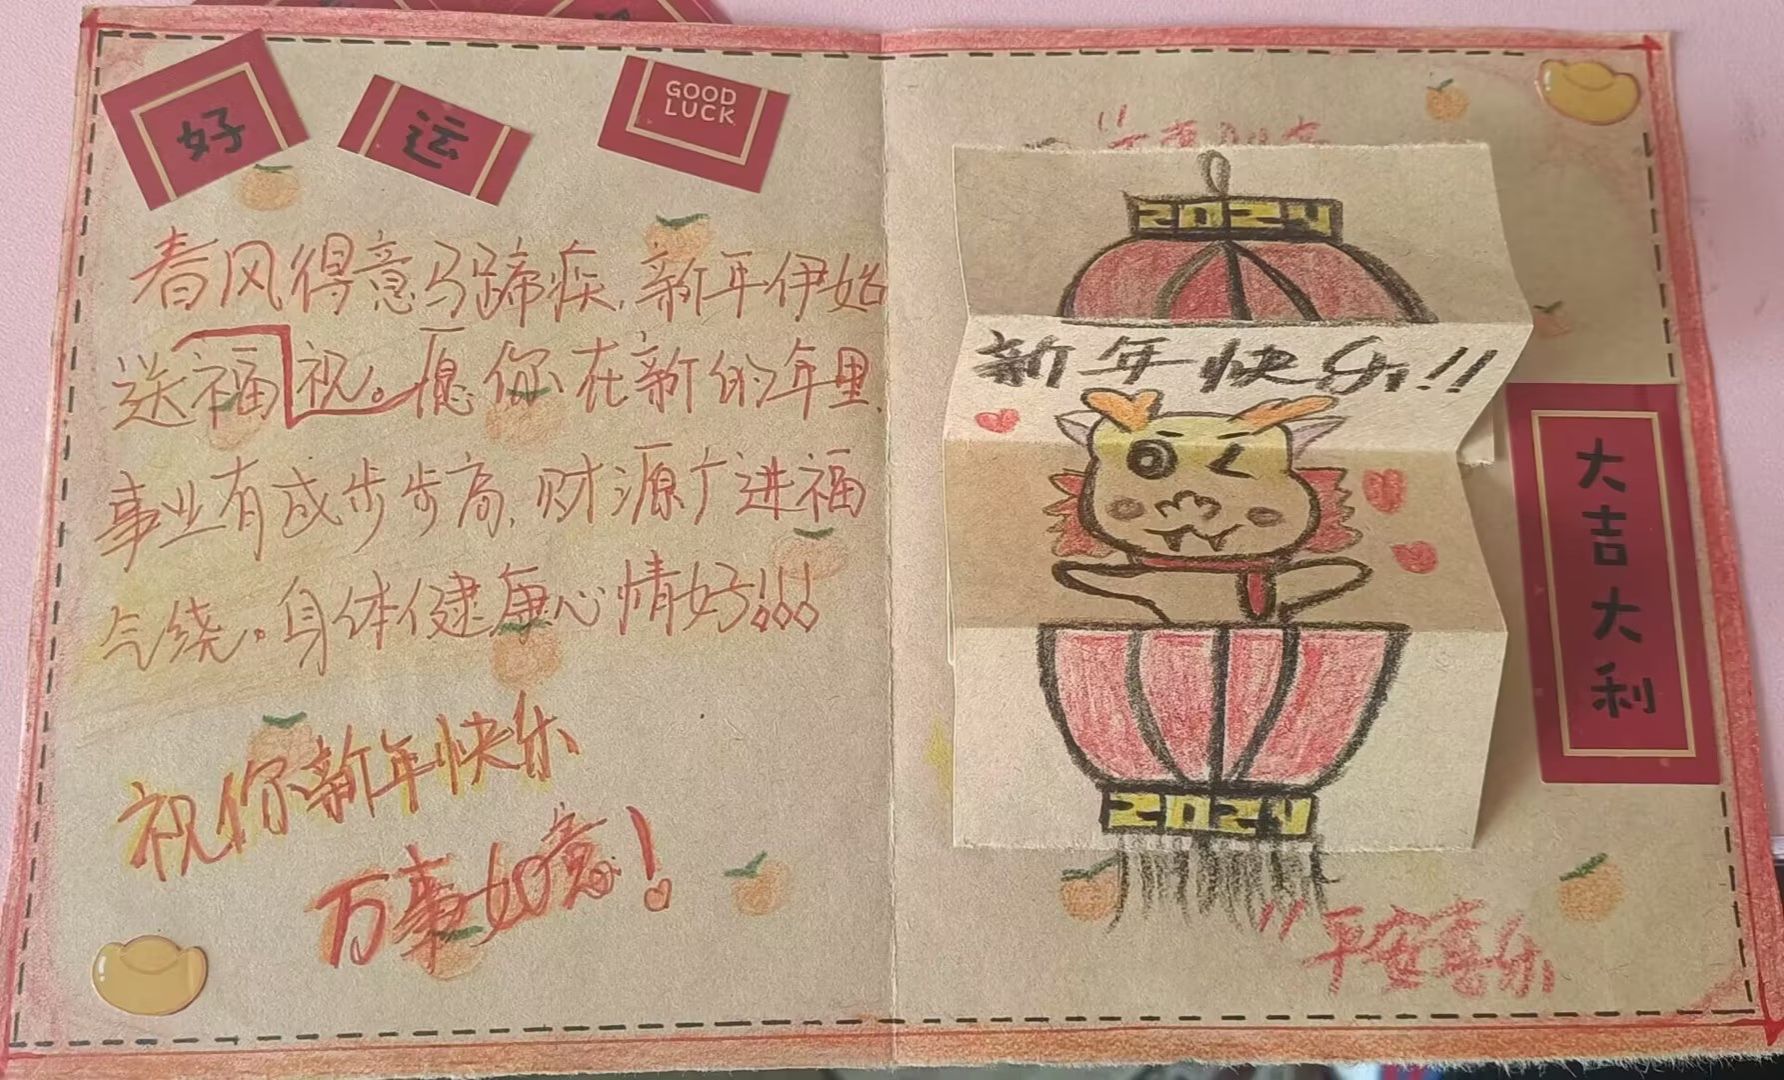 好
运
GOOD
LUCK
春风得意马蹄疾,新年伊始
送福祝。愿你在新的年里,
事业有成步步高,财源广进福
气绕。身体健康心情好!!!
祝你新年快乐
万事如意!
2024
新年快乐!!
2024
大吉大利
"平安喜乐